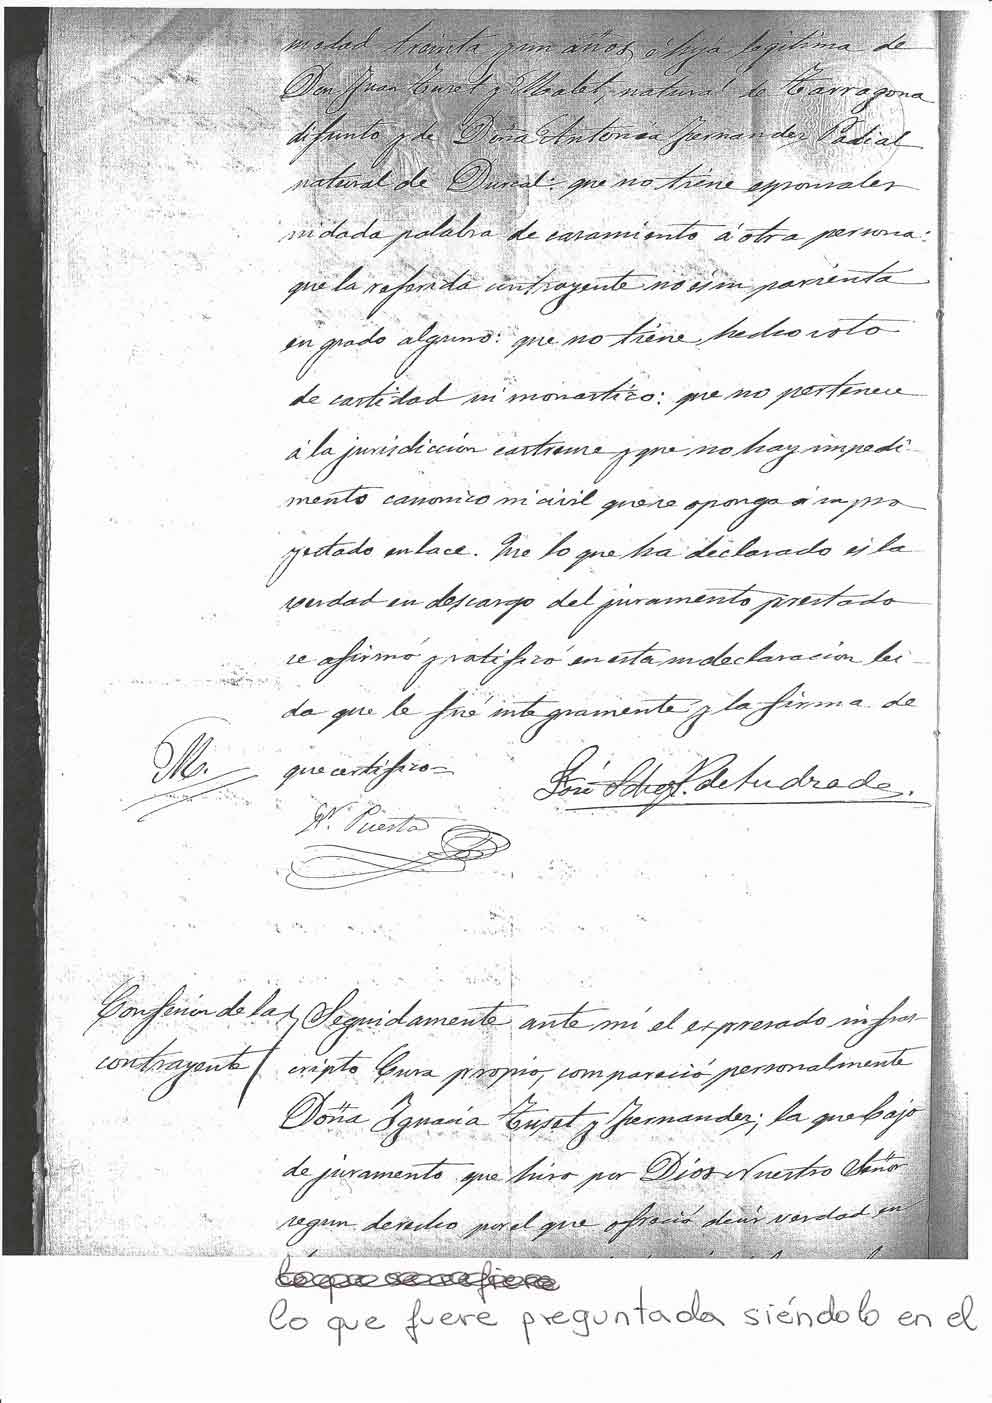 su edad treinta y un años, é hija legitima de
Don Juan Tuset y Malet, natural de Tarragona
difunto y de Doña Antonia Fernandez Padial
natural de Durcal: que no tiene esponsales
ni dada palabra de casamiento á otra persona:
que la referida contrayente no es su parienta
en grado alguno: que no tiene hecho voto
de castidad ni monastico: que no pertenece
á la jurisdicción castrense y que no hay impedi-
mento canonico ni civil que se oponga á su pro
yectado enlace. Que lo que ha declarado es la
verdad en descargo del juramento prestado
se afirmó y ratificó en esta su declaración lei-
da que le fué integramente y la firma de
M. que certifico=
José de Andrade.
Puerta
Confesion de la
contrayente
Seguidamente ante mi el expresado infras-
cripto Cura propio, compareció personalmente
Doña Ignacia Tuset y Fernandez; la que bajo
de juramento que hizo por Dios Nuestro Señor
segun derecho por el que ofreció decir verdad en
lo que fuere preguntada siéndolo en el